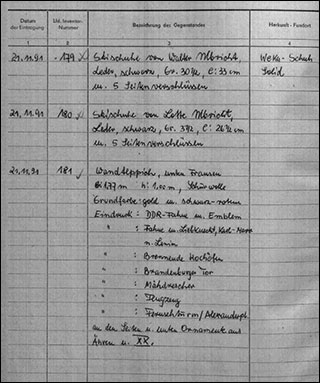 Datum der Eintragung
Lfd. Inventar-Nummer
Bezeichnung des Gegenstandes
Herkunft - Fundort
2
3
4
21.11.91 179 Skischuhe von Walter Ulbricht, Weka-Schuh
Leder, schwarz, Gr. 30½, l: 33 cm Solid
u. 5 Seitenverschlüssen
21.11.91 180 Skischuhe von Lotte Ulbricht,
Leder, schwarz, Gr. l: 26½ cm
u. 5 Seitenverschlüssen
21.11.91 181 Wandteppich, unten Fransen
1,77 m h: Schurwolle
Grundfarbe: gold u. schwarz-rotem
Eindruck: DDR-Fahne u. Emblem
" : Fahne u. Liebknecht, Karl-Marx
u. Lenin
" : Brennende Hochöfen
" : Brandenburger Tor
" : Mähdrescher
" : Flugzeug
" : Fernsehturm/Alexanderpl.
an den Seiten u. unten Ornamente aus
Ähren u. XX.